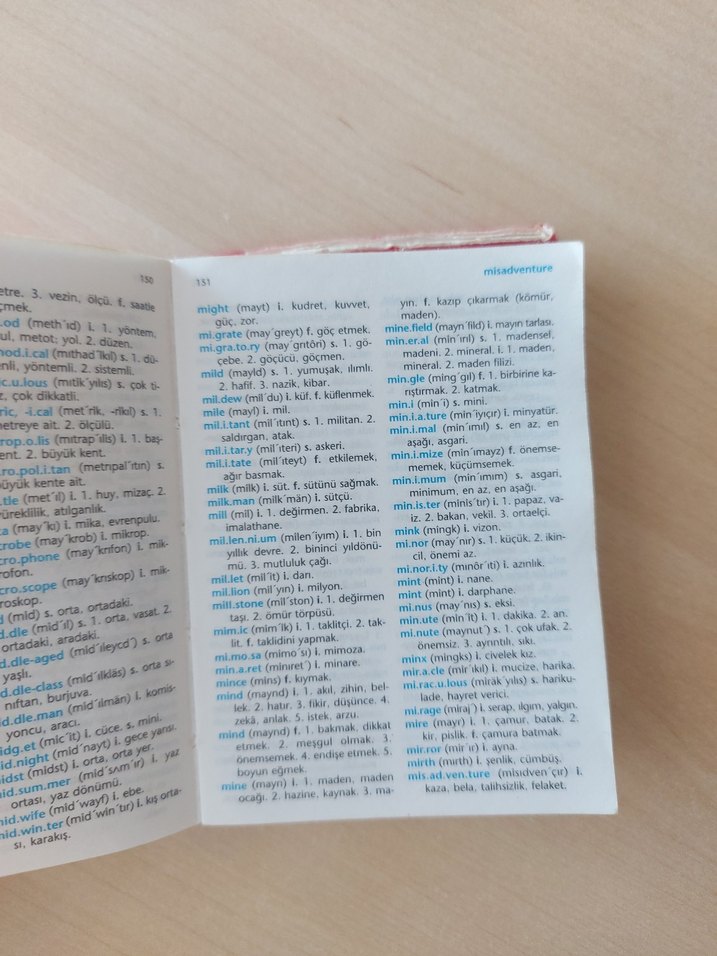 150
etre. 3. vezin, ölçü. f. saatle
çmek.
.od (meth´ıd) i. 1. yöntem,
ul, metot; yol. 2. düzen.
hod.i.cal (mıthad´îkıl) s. 1. dü-
enli, yöntemli. 2. sistemli.
ic.u.lous (mıtîk´yılıs) s. çok ti-
z, çok dikkatli.
ric, -i.cal (met´rîk, -rîkıl) s. 1.
metreye ait. 2. ölçülü.
rop.o.lis (mıtrap´ılîs) i. 1. baş-
ent. 2. büyük kent.
ro.pol.i.tan (metrıpal´ıtın) s.
büyük kente ait.
.tle (met´ıl) i. 1. huy, mizaç. 2.
yüreklilik, atılganlık.
ca (may´kı) i. mika, evrenpulu.
crobe (may´krob) i. mikrop.
cro.phone (may´krıfon) i. mik-
rofon.
cro.scope (may´krıskop) i. mik-
roskop.
d (mîd) s. orta, ortadaki.
d.dle (mîd´ıl) s. 1. orta, vasat. 2.
ortadaki, aradaki.
d.dle-aged (mîd´ıleycd´) s. orta
yaşlı.
d.dle-class (mîd´ılkläs) s. orta sı-
nıftan, burjuva.
id.dle.man (mîd´ılmän) i. komis-
yoncu, aracı.
idg.et (mîc´ît) i. cüce. s. mini.
id.night (mîd´nayt) i. gece yarısı.
idst (mîdst) i. orta, orta yer.
id.sum.mer (mîd´sʌm´ır) i. yaz
ortası, yaz dönümü.
nid.wife (mîd´wayf) i. ebe.
mid.win.ter (mîd´wîn´tır) i. kış orta-
sı, karakış.
151
misadventure
might (mayt) i. kudret, kuvvet,
güç, zor.
mi.grate (may´greyt) f. göç etmek.
mi.gra.to.ry (may´grıtôri) s. 1. gö-
çebe. 2. göçücü, göçmen.
mild (mayld) s. 1. yumuşak, ılımlı.
2. hafif. 3. nazik, kibar.
mil.dew (mîl´du) i. küf. f. küflenmek.
mile (mayl) i. mil.
mil.i.tant (mîl´ıtınt) s. 1. militan. 2.
saldırgan, atak.
mil.i.tar.y (mîl´ıteri) s. askeri.
mil.i.tate (mîl´ıteyt) f. etkilemek,
ağır basmak.
milk (mîlk) i. süt. f. sütünü sağmak.
milk.man (mîlk´män) i. sütçü.
mill (mîl) i. 1. değirmen. 2. fabrika,
imalathane.
mil.len.ni.um (mîlen´iyım) i. 1. bin
yıllık devre. 2. bininci yıldönü-
mü. 3. mutluluk çağı.
mil.let (mîl´ît) i. darı.
mil.lion (mîl´yın) i. milyon.
mill.stone (mîl´ston) i. 1. değirmen
taşı. 2. ömür törpüsü.
mim.ic (mîm´îk) i. 1. taklitçi. 2. tak-
lit. f. taklidini yapmak.
mi.mo.sa (mîmo´sı) i. mimoza.
min.a.ret (mînıret´) i. minare.
mince (mîns) f. kıymak.
mind (maynd) i. 1. akıl, zihin, bel-
lek. 2. hatır. 3. fikir, düşünce. 4.
zekâ, anlak. 5. istek, arzu.
mind (maynd) f. 1. bakmak, dikkat
etmek. 2. meşgul olmak. 3.
önemsemek. 4. endişe etmek. 5.
boyun eğmek.
mine (mayn) i. 1. maden, maden
ocağı. 2. hazine, kaynak. 3. ma-
yın. f. kazıp çıkarmak (kömür,
maden).
mine.field (mayn´fild) i. mayın tarlası.
min.er.al (mîn´ırıl) s. 1. madensel,
madeni. 2. mineral. i. 1. maden,
mineral. 2. maden filizi.
min.gle (mîng´gıl) f. 1. birbirine ka-
rıştırmak. 2. katmak.
min.i (mîn´i) s. mini.
min.i.a.ture (mîn´iyıçır) i. minyatür.
min.i.mal (mîn´ımıl) s. en az, en
aşağı, asgari.
min.i.mize (mîn´ımayz) f. önemse-
memek, küçümsemek.
min.i.mum (mîn´ımım) s. asgari,
minimum, en az, en aşağı.
min.is.ter (mînîs´tır) i. 1. papaz, va-
iz. 2. bakan, vekil. 3. ortaelçi.
mink (mîngk) i. vizon.
mi.nor (may´nır) s. 1. küçük. 2. ikin-
cil, önemi az.
mi.nor.i.ty (mınôr´ıti) i. azınlık.
mint (mînt) i. nane.
mint (mînt) i. darphane.
mi.nus (may´nıs) s. eksi.
min.ute (mîn´ît) i. 1. dakika. 2. an.
mi.nute (maynut´) s. 1. çok ufak. 2.
önemsiz. 3. ayrıntılı, sıkı.
minx (mîngks) i. civelek kız.
mir.a.cle (mîr´ıkıl) i. mucize, harika.
mi.rac.u.lous (mîräk´yılıs) s. hariku-
lade, hayret verici.
mi.rage (mîraj´) i. serap, ılgım, yalgın.
mire (mayr) i. 1. çamur, batak. 2.
kir, pislik. f. çamura batmak.
mir.ror (mîr´ır) i. ayna.
mirth (mırth) i. şenlik, cümbüş.
mis.ad.ven.ture (mîsıdven´çır) i.
kaza, bela, talihsizlik, felaket.